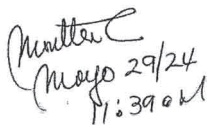 Mayo 29/24
11:39 am